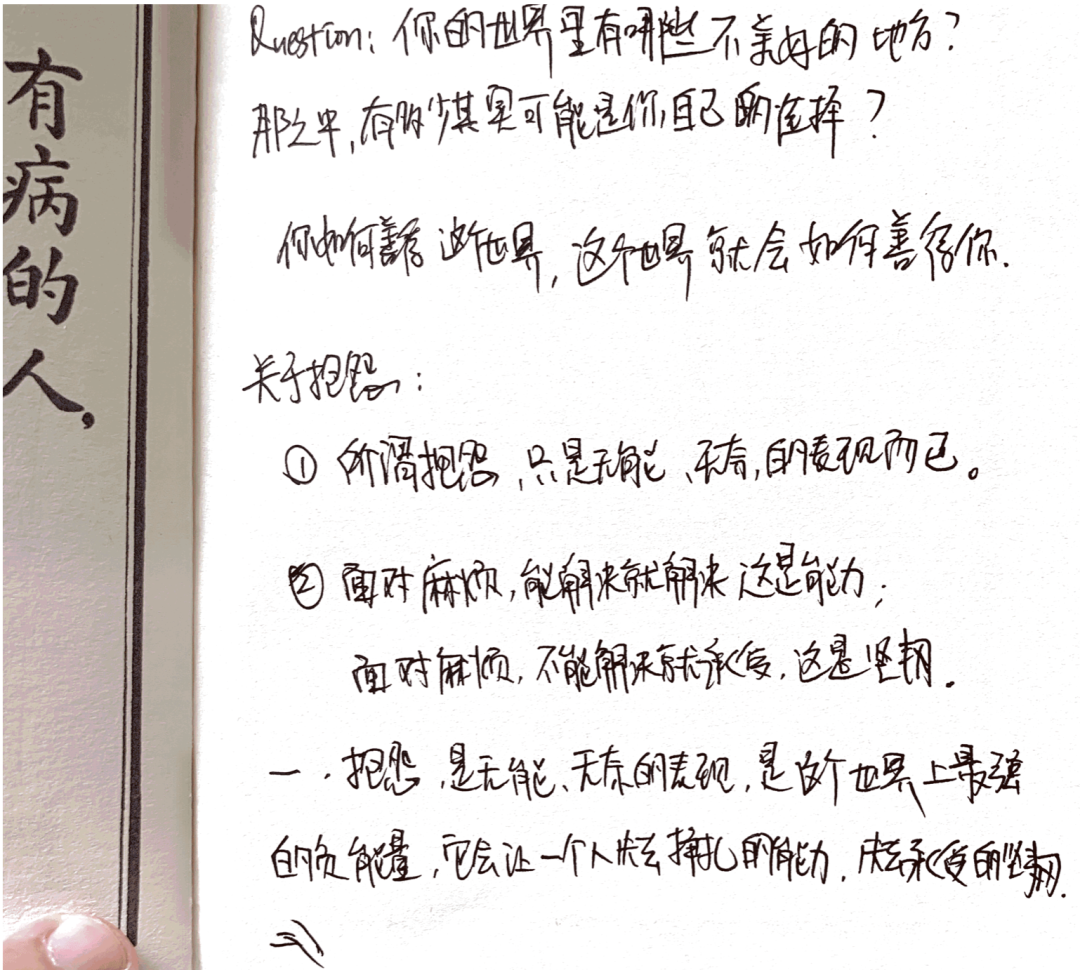 有病的人,
Question: 你的世界里有哪些不美好的地方?
那之中,有多少其实可能是你自己的选择?
你如何善待这个世界,这个世界就会如何善待你.
关于抱怨:
① 所谓抱怨,只是无能、无奈,的表现而已。
② 面对麻烦,能解决就解决 这是能力;
面对麻烦,不能解决就承受,这是坚韧.
一.抱怨,是无能、无奈的表现,是这个世界上最强
的负能量,它会让一个人失去挣扎的能力,失去承受的坚韧.